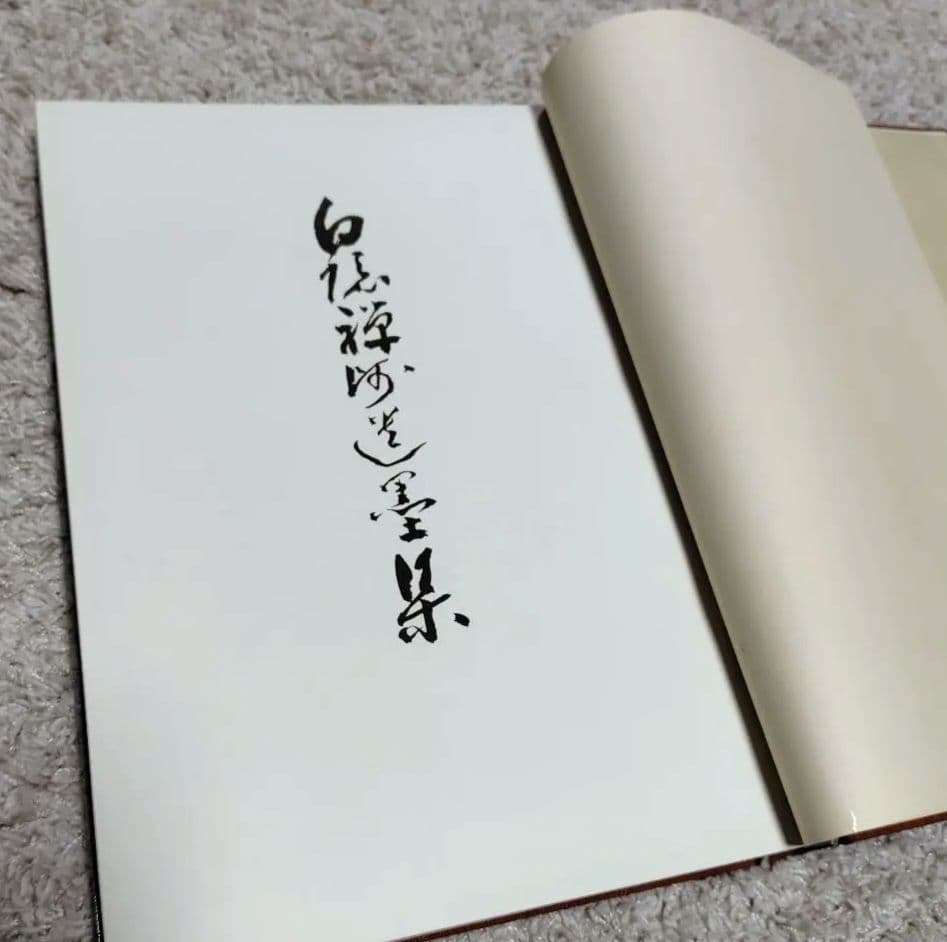 白隠禅師遺墨集